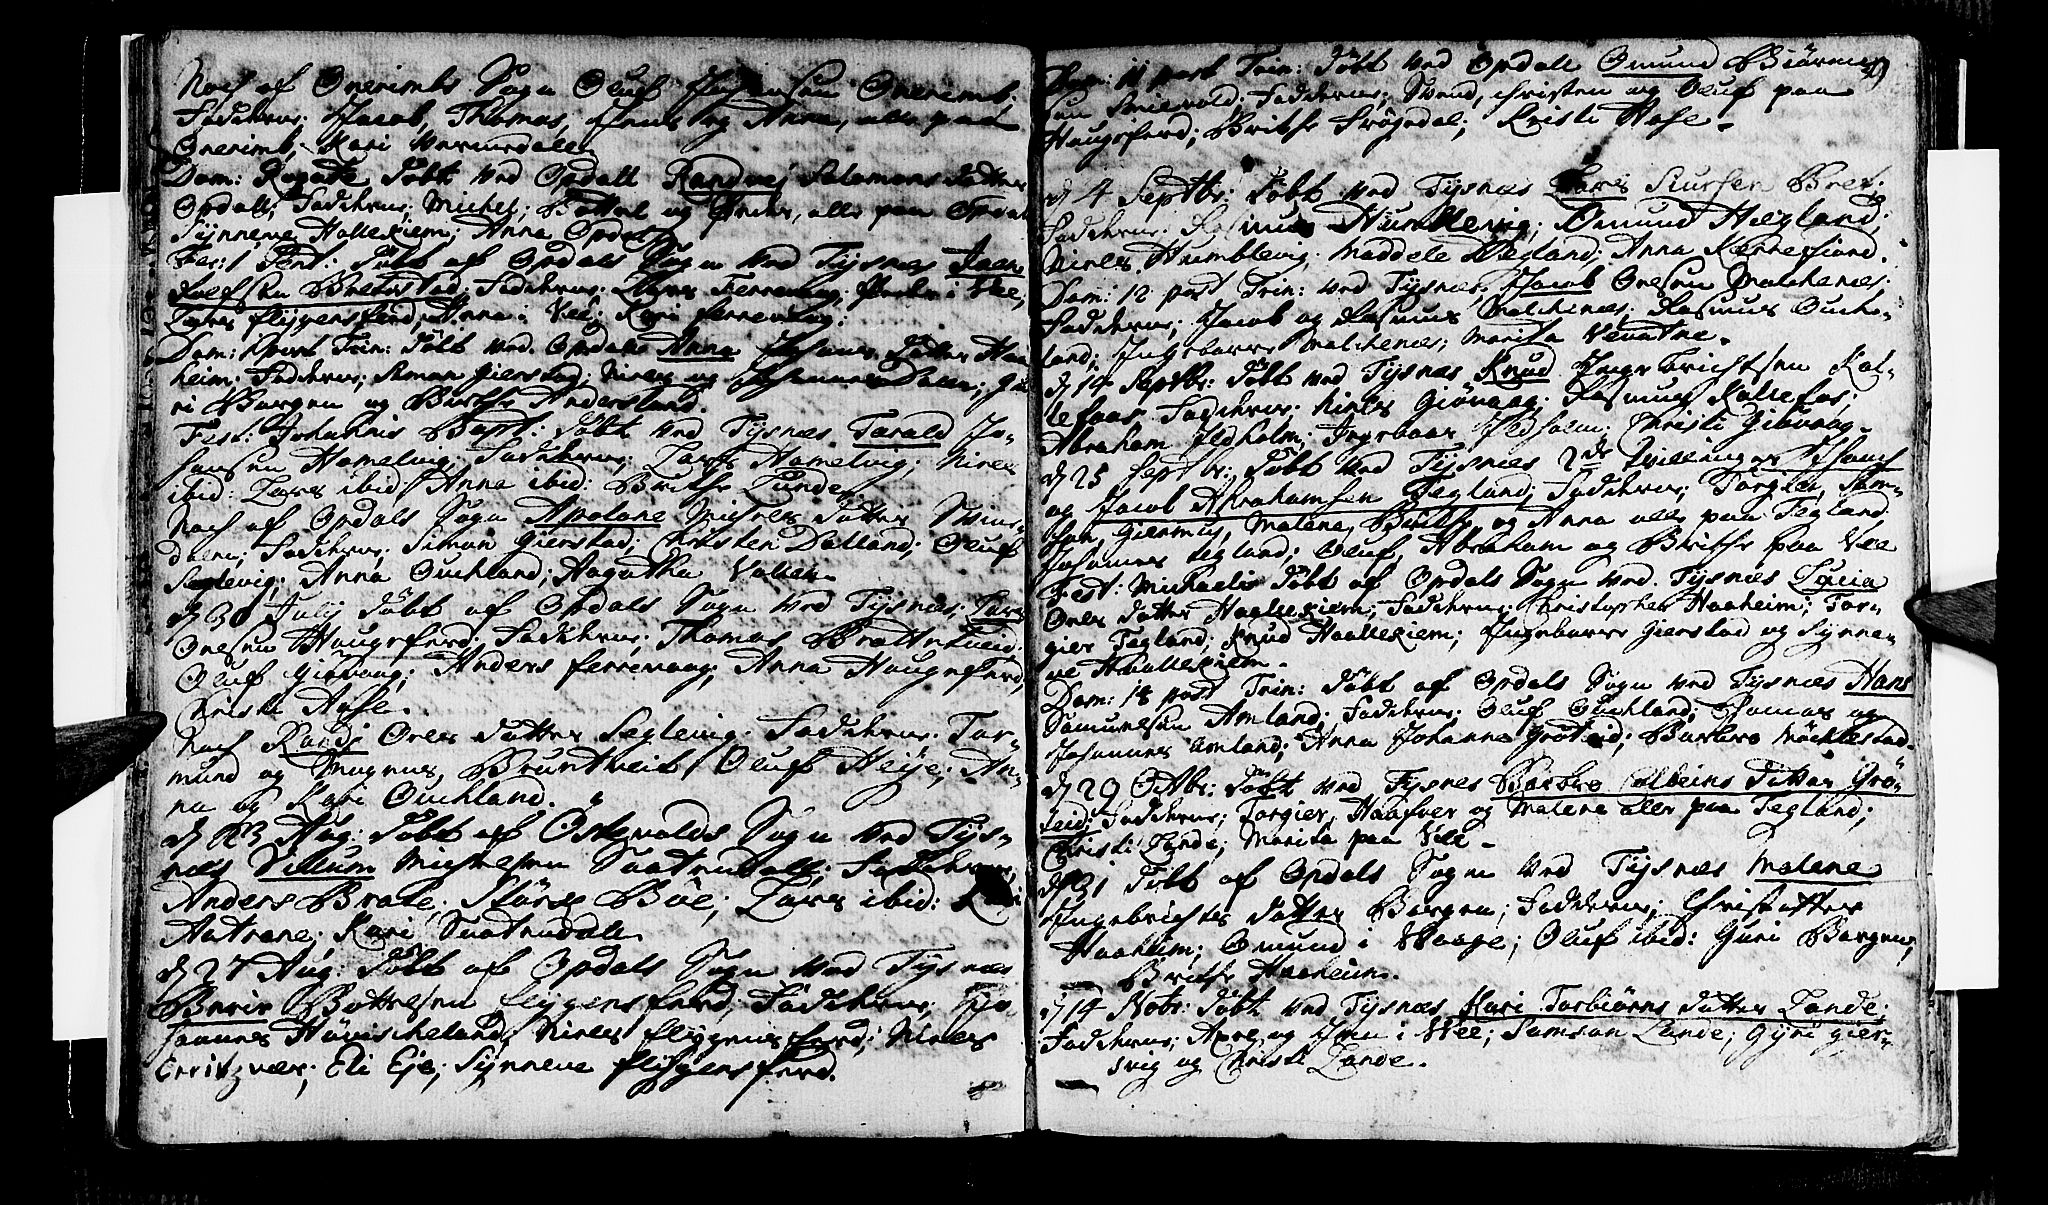 Noch af Onerimbs Sogn Oluf Johansen Onerimb;
Fadderne: Jacob, Thomas, Jens og Anna, alle paa
Onerimb, Kari
Dom: Rogate Døbt ved Opdall Randvej Salamons datter
Opdall; Fadderne; Michel; Bottel og Peder, alle paa Opdal
Synneve Hallekiem; Anna Opdal.
Fer: 1 Pent: Døbt af Opdals Sogn ved Tysnæs
Rolfsen Brekestad; Fadderne: Lars Ferrevaag; Peder i Vee;
Lars flygensfierd, Anna i Vee; Kari ferrevaag.
Dom: 1 post Trin: Døbt ved Opdal Anna Johans datter Haa-
heim; Fadderne; Simon Gierstad; Niels og Johannes Dalen; Gu-
ri Borgen og Brithe Andersland.
Fest: Johannis Bapt: Døbt ved Tysnæs Tarald Jo-
hansen Hamelvig; Fadderne; Lars Hamelvig; Niels
ibid: Lars ibid; Anna ibid: Brithe Lande.
Noch af Opdals Sogn Apelone Michels datter Svins-
dalen; Fadderne; Simon Gierstad; Christen Dalland; Oluf
Seglevig; Anna Ouchland; Aagatha
d 30 July Døbt af Opdals Sogn ved Tysnæs: Lars
Olesen Haugsfierd; Fadderne; Thomas Bratthueid;
Oluf Giøvaag; Anders ferrevaag; Anna Haugsfierd,
Christi Hofse.
Noch Randi Oles datter Seglevig. Fadderne: Tor-
mund og Magnus, Bruntveit; Oluf Heije; An-
na og Kari Ouchland.
d 13 Aug: Døbt af Ostevolds Sogn ved Tys-
næs Villum Michelsen Saatendall; Fadderne;
Anders Brate; Størs Bøe; Lars ibid:
Autrane; Kari Saatendall.
d 27 Aug: Døbt af Opdals Sogn ved Tysnæs
Berie Bottelsen flygensfierd; Fadderne; Jo-
hannes Høvischeland, Niels flyggensfierd; Niels
Erritzvær; Eli Eje; Synneve flygensfierd.
Dom: 11 post Trin: Døbt ved Opdall Omund Biørn-
sen Drievold; Fadderne; Svend, Christen og Oluf paa
Haugsfierd; Brithe Drøgedal; Kristi Hofse.
d 4 Septbr: Døbt ved Tysnæs Lars Siursen Bret;
Fadderne: Rasmus Humblevig; Omund Hegland;
Niels Humblevig; Maddele Hegland; Anna Kærrefiord.
Dom: 12 post Trin: ved Tysnæs Jacob Olesen Malchenes:
Fadderne; Jacob og Rasmus Malchenes; Rasmus Ouch-
land; Ingebaare Malchenes; Marita Vevatne.
d 14 Septbr: Døbt ved Tysnæs Knud Ingebrichtsen Kal-
lefaas; Fadderne; Niels Giøvaag; Rasmus Kallefos;
Abraham Ildholm; Ingebaar Ildholm; Christi Giøvaag.
d 25 Septbr: Døbt ved Tysnæs 2de Tvillinger Johan
og Jacob Abrahamsen Tegland; Fadderne; Torgier, Sam-
son, Giermus, Malene, Brithe, og Anna alle paa Tegland
Johannes Tegland; Oluf, Abraham og Brithe paa Vee
Fest: Michaelis Døbt af Opdals Sogn ved Tysnæs Lucia
Oles datter Haallekiem; Fadderne: Christopher Haaheim; Tor-
gier Tegland; Knud Haallekiem; Ingebaare Gierstad og Synne-
ve Haallekiem.
Dom: 18 post Trin: Døbt af Opdals Sogn ved Tysnæs Hans
Samuelsen Amland; Fadderne: Oluf Ouchland; Thomas og
Johannes Amland; Anna Johanne Grøteid; Barbro Møchlestad.
d 29 Octbr: Døbt ved Tysnæs Barbro Colbeins datter Grø-
teid; Fadderne; Torgier, Haafver og Malene alle paa Tegland;
Christi Lande; Marita paa Vee.
d 31 Døbt af Opdals Sogn ved Tysnæs Malene
Ingebrichts datter Borgen; Fadderne; Christoffer
Haaheim; Omund i Waage; Oluf ibid: Guri Borgen;
Brithe Haaheim.
d 14 Nobr: Døbt ved Tysnæs Kari Torbiørns datter Lande;
Fadderne; Axel og Jon i Vee; Samson Lande; Gyri gier-
svig og Christi Lande.